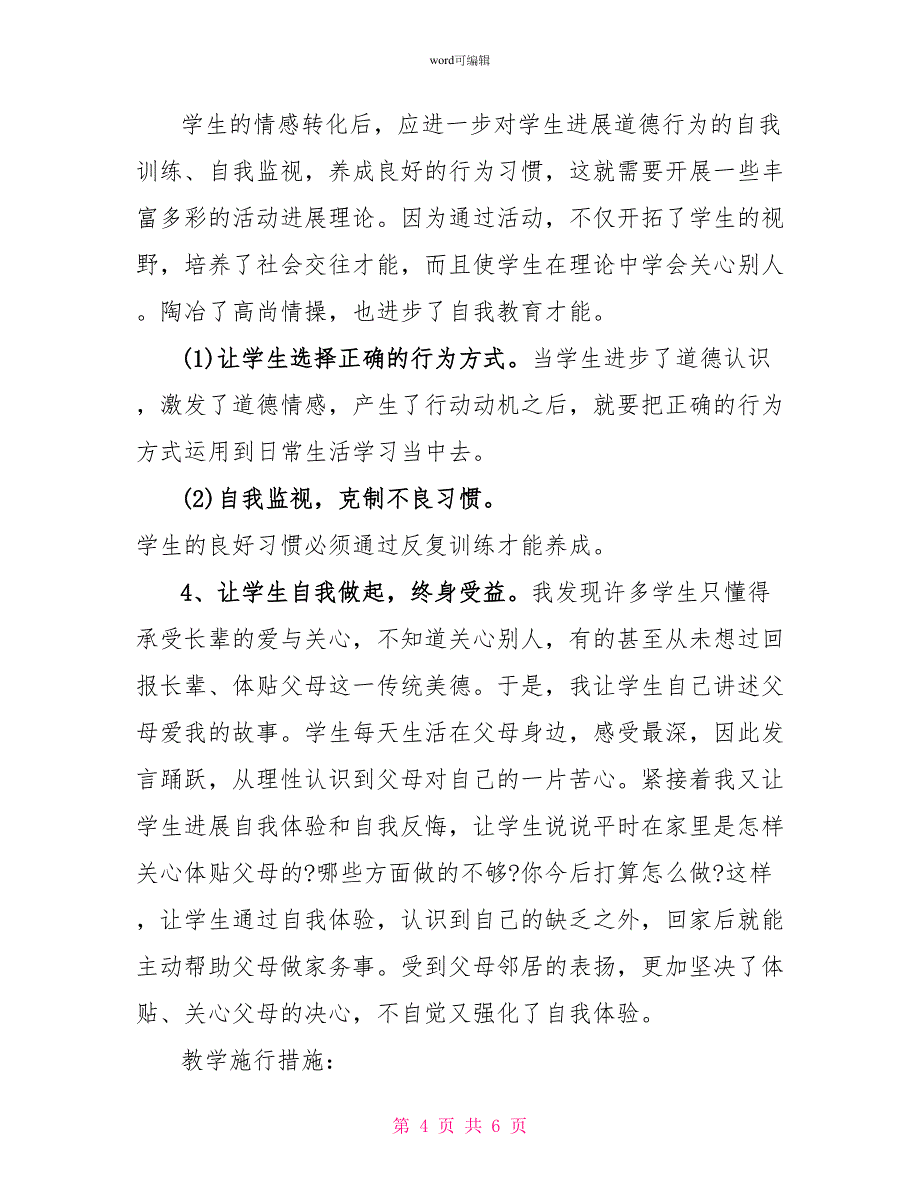 word可编辑
学生的情感转化后，应进一步对学生进展道德行为的自我
训练、自我监视，养成良好的行为习惯，这就需要开展一些丰
富多彩的活动进展理论。因为通过活动，不仅开拓了学生的视
野，培养了社会交往才能，而且使学生在理论中学会关心别人
。陶冶了高尚情操，也进步了自我教育才能。
(1)让学生选择正确的行为方式。当学生进步了道德认识
，激发了道德情感，产生了行动动机之后，就要把正确的行为
方式运用到日常生活学习当中去。
(2)自我监视，克制不良习惯。
学生的良好习惯必须通过反复训练才能养成。
4、让学生自我做起，终身受益。我发现许多学生只懂得
承受长辈的爱与关心，不知道关心别人，有的甚至从未想过回
报长辈、体贴父母这一传统美德。于是，我让学生自己讲述父
母爱我的故事。学生每天生活在父母身边，感受最深，因此发
言踊跃，从理性认识到父母对自己的一片苦心。紧接着我又让
学生进展自我体验和自我反悔，让学生说说平时在家里是怎样
关心体贴父母的?哪些方面做的不够?你今后打算怎么做?这样
，让学生通过自我体验，认识到自己的缺乏之外，回家后就能
主动帮助父母做家务事。受到父母邻居的表扬，更加坚决了体
贴、关心父母的决心，不自觉又强化了自我体验。
教学施行措施：
第 4 页 共 6 页